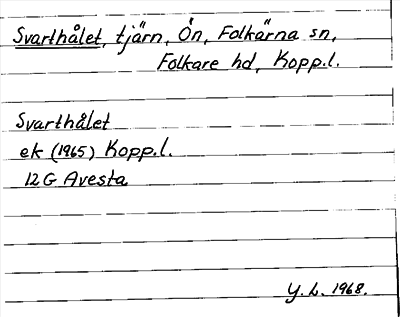 Svarthålet, tjärn, Ön, Folkärna sn,
Folkare hd, Kopp.l.
Svarthålet
ek (1965) Kopp.l.
12G Avesta
Y.L. 1968.